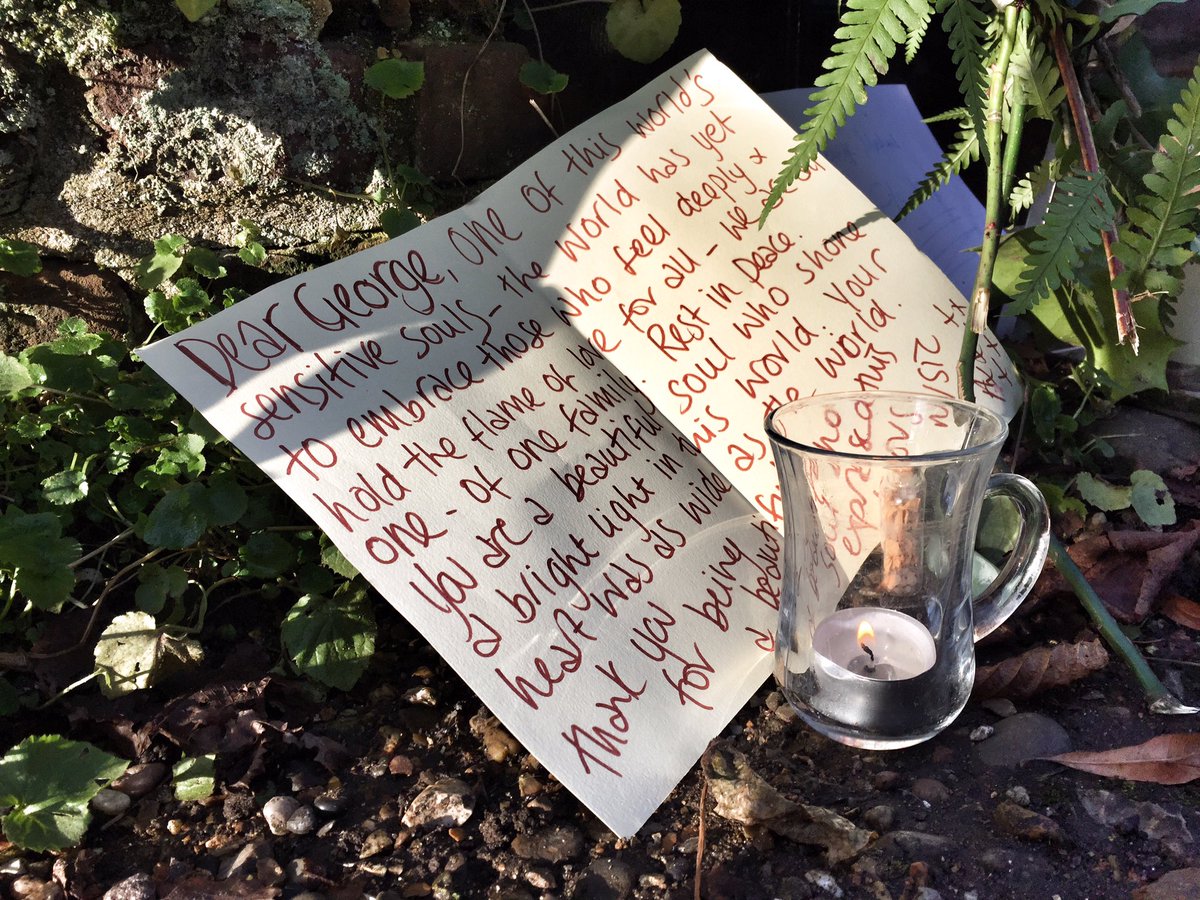 Dear George, One of this world's
sensitive souls - the world has yet
to embrace those who feel deeply x
hold the flame of love for all - we are
one - of one family. Rest in peace.
you are a beautiful soul who shone
a bright light in this world. Your
heart was as wide as the world.
Thank you
for being
a
xx